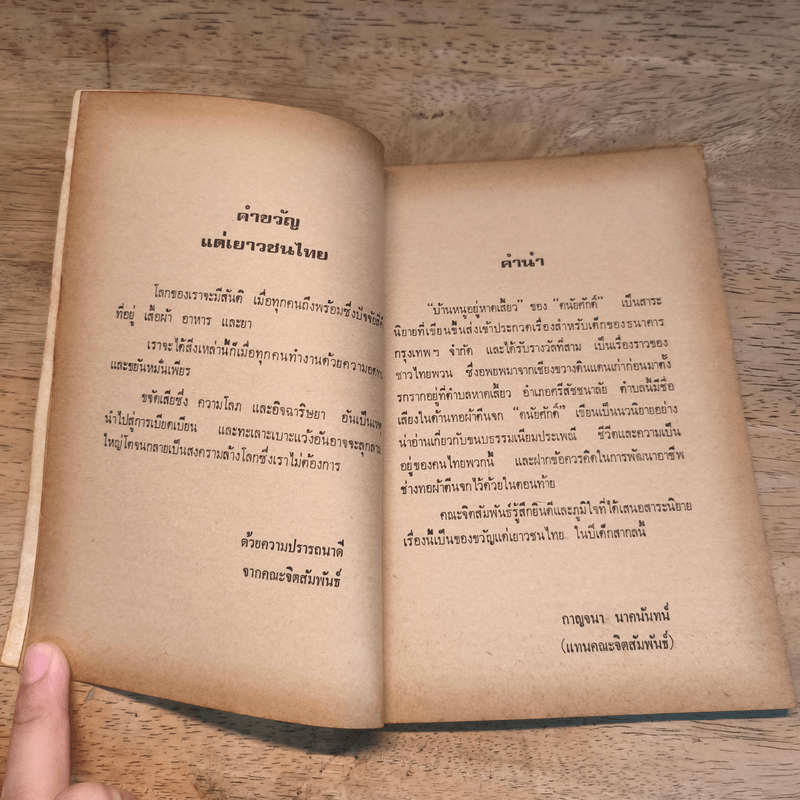 คำขวัญ
แต่เยาวชนไทย
โลกของเราจะมีสันติ เมื่อทุกคนถึงพร้อมซึ่งปัจจัยสี่
ที่อยู่ เสื้อผ้า อาหาร และยา
เราจะได้สิ่งเหล่านี้ก็เมื่อทุกคนทำงานด้วยความ
และขยันหมั่นเพียร
ขจัดเสียซึ่ง ความโลภ และอิจฉาริษยา อันเป็นเหตุ
นำไปสู่การเบียดเบียน และทะเลาะเบาะแว้งอันอาจจะลุกลาม
ใหญ่โตจนกลายเป็นสงครามล้างโลกซึ่งเราไม่ต้องการ
ด้วยความปรารถนาดี
จากคณะจิตสัมพันธ์
คำนำ
"บ้านหนูอยู่หาดเสี้ยว" ของ "ดนัยศักดิ์" เป็นสาระ
นิยายที่เขียนขึ้นส่งเข้าประกวดเรื่องสำหรับเด็กของธนาคาร
กรุงเทพฯ จำกัด และได้รับรางวัลที่สาม เป็นเรื่องราวของ
ชาวไทยพวน ซึ่งอพยพมาจากเชียงขวางดินแดนเก่าก่อนมาตั้ง
รกรากอยู่ที่ตำบลหาดเสี้ยว อำเภอศรีสัชชนาลัย ตำบลนี้มีชื่อ
เสียงในด้านทอผ้าตีนจก "ดนัยศักดิ์" เขียนเป็นนวนิยายอย่าง
น่าอ่านเกี่ยวกับขนบธรรมเนียมประเพณี ชีวิตและความเป็น
อยู่ของคนไทยพวกนี้ และฝากข้อควรคิดในการพัฒนาอาชีพ
ช่างทอผ้าตีนจกไว้ด้วยในตอนท้าย
คณะจิตสัมพันธ์รู้สึกยินดีและภูมิใจที่ได้เสนอสาระนิยาย
เรื่องนี้เป็นของขวัญแด่เยาวชนไทย ในปีเด็กสากลนี้
กาญจนา นาคนันทน์
(แทนคณะจิตสัมพันธ์)